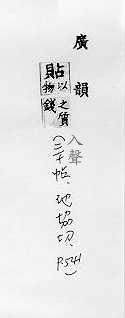 廣韻
貼 以物之質錢
入聲
(三十帖、地協切、P541)